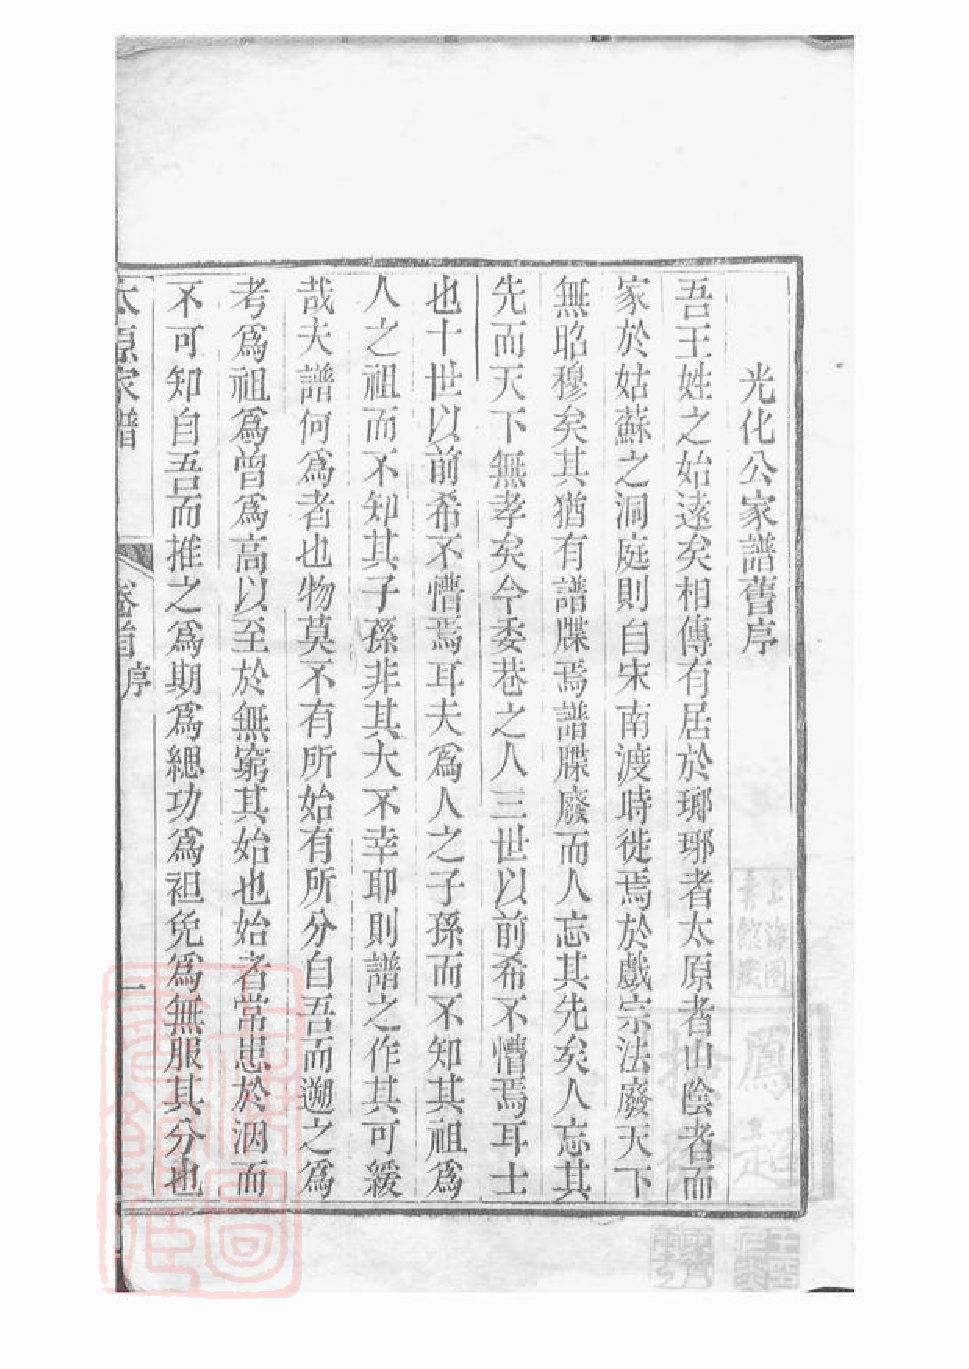 光化公家譜舊序
吾王姓之始遠矣相傳有居於瑯琊者太原者山陰者而
家於姑蘇之洞庭則自宋南渡時徙焉於戲宗法廢天下
無昭穆矣其猶有譜牒焉譜牒廢而人忘其先矣人忘其
先而天下無孝矣今委巷之人三世以前希不懵焉耳士
也十世以前希不懵焉耳夫爲人之子孫而不知其祖爲
人之祖而不知其子孫非其大不幸耶則譜之作其可緩
哉夫譜何爲者也物莫不有所始有所分自吾而遡之爲
考爲祖爲曾爲高以至於無窮其始也始者常患於泅而
不可知自吾而推之爲期爲緦功爲袒免爲無服其分也
太原家譜
卷首 序
一
上海圖
書館藏